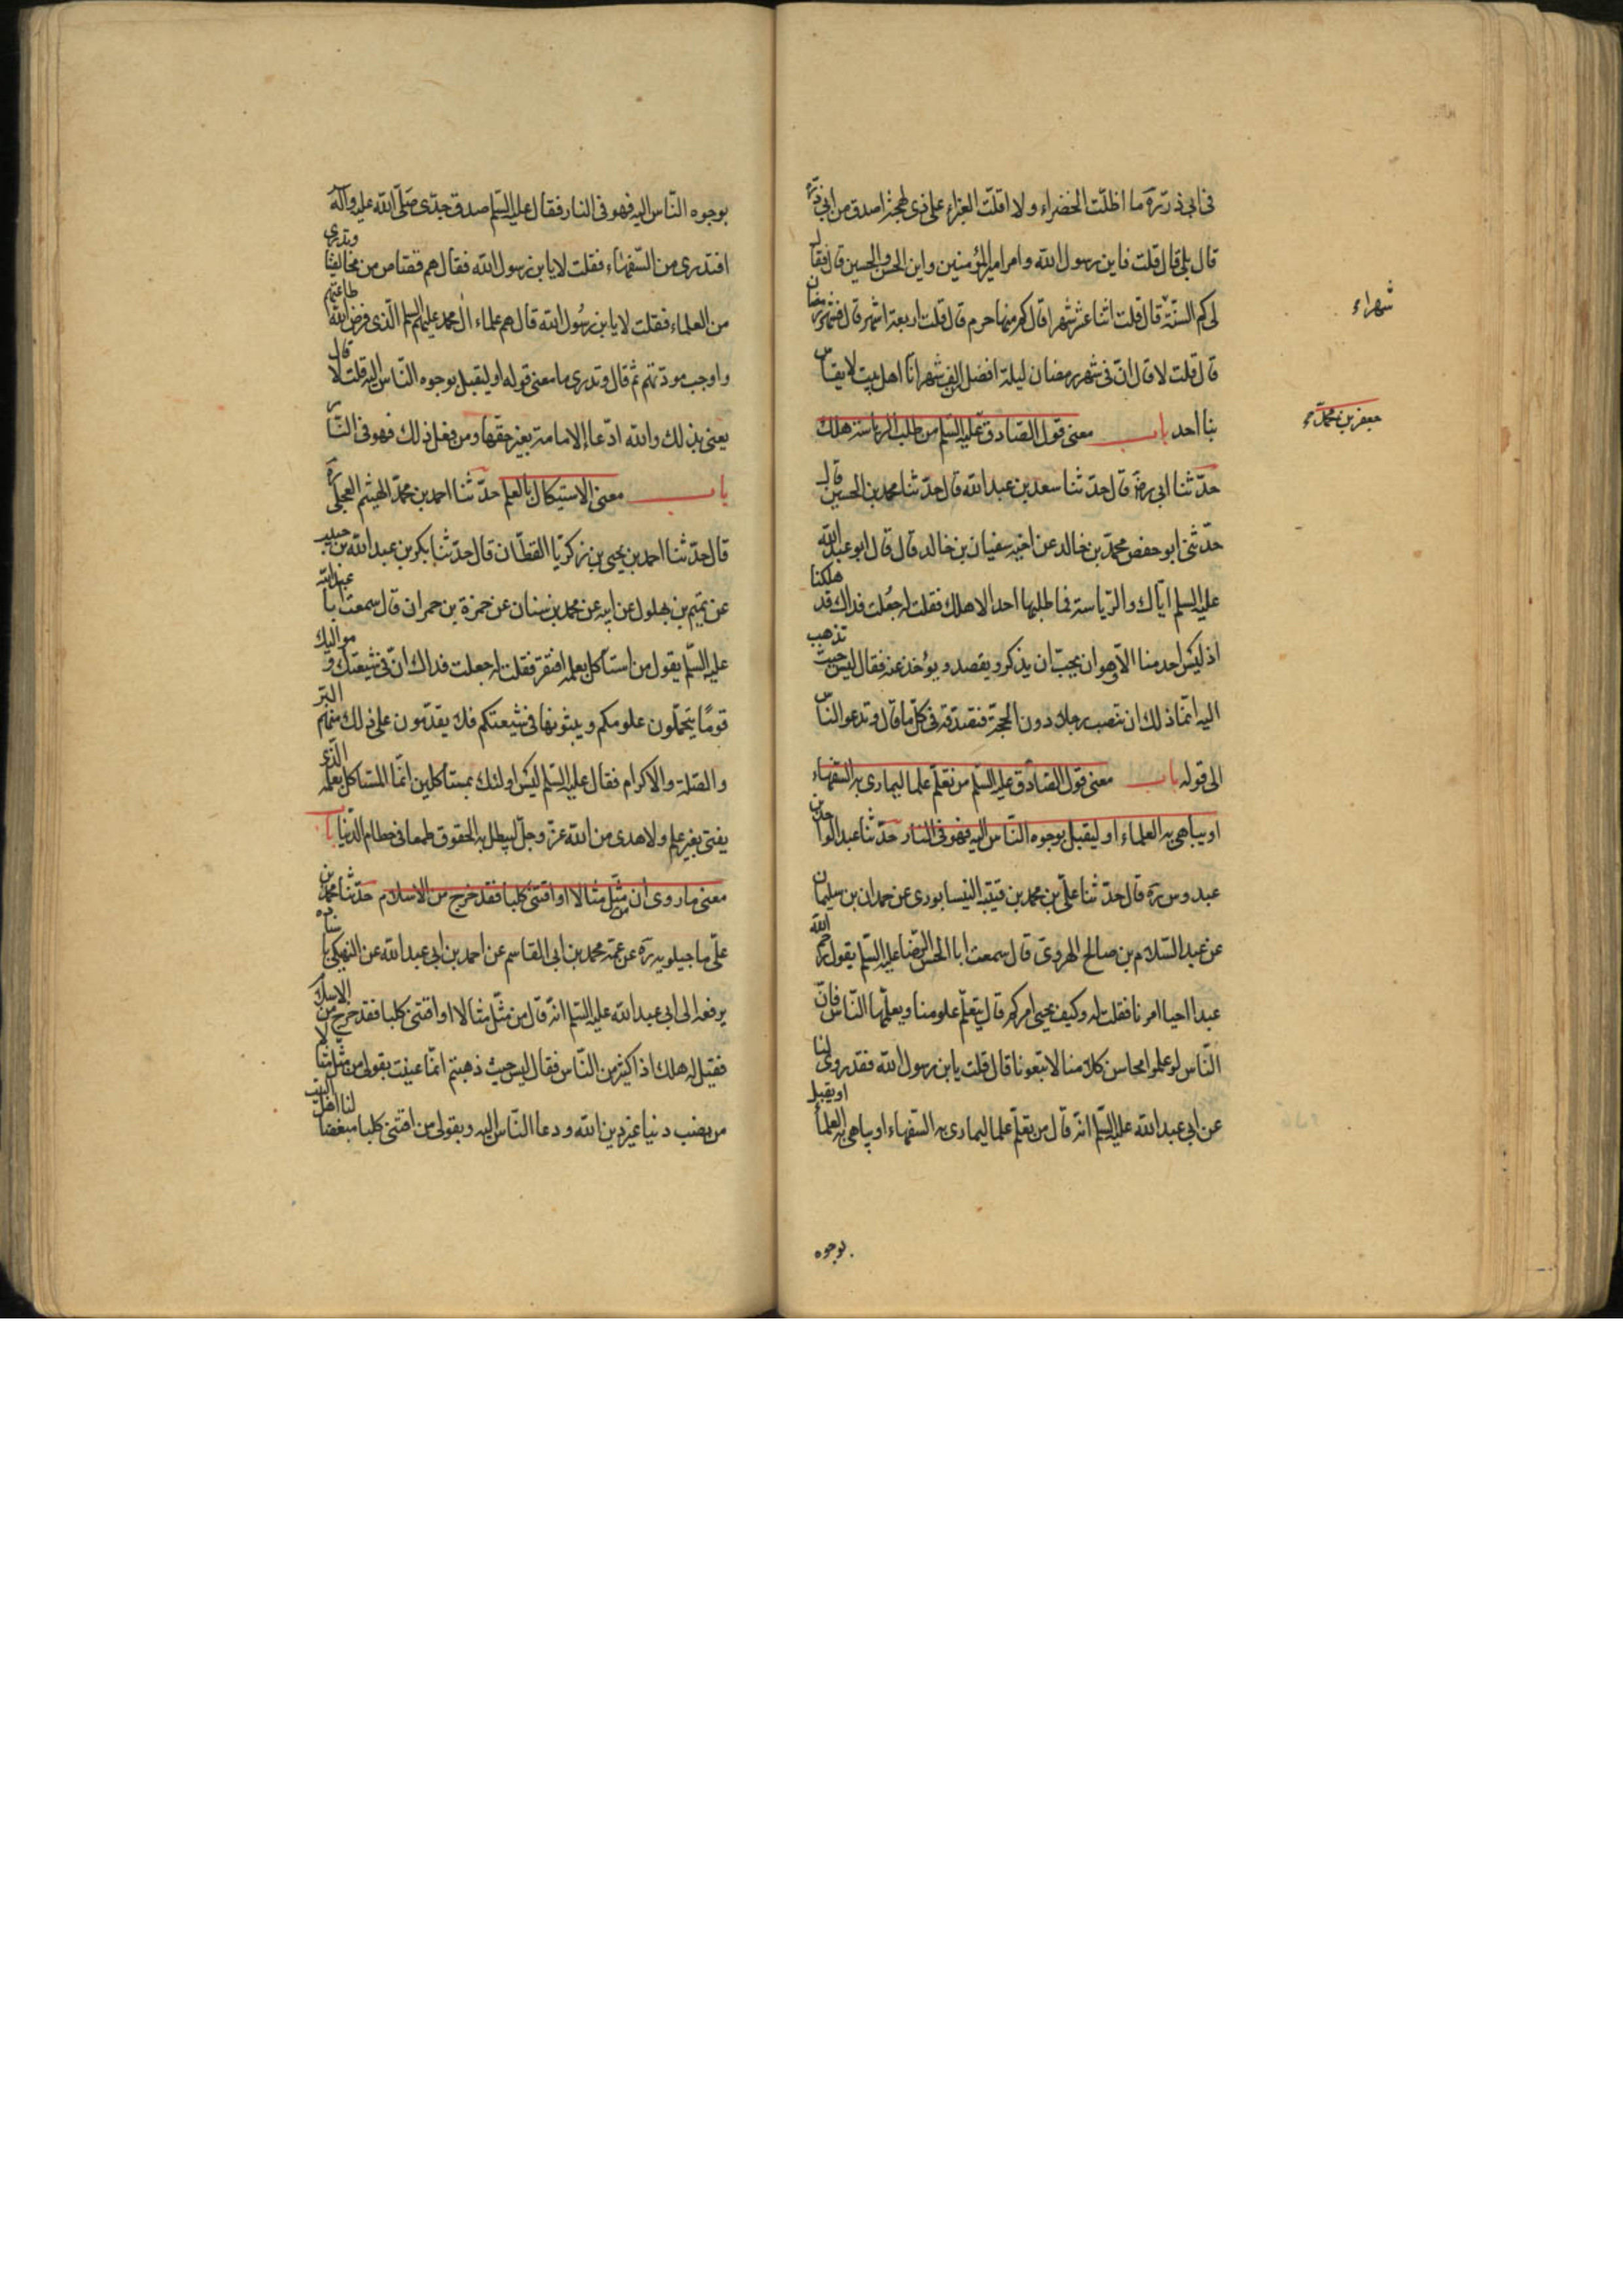 فى ابى ذر ره ما اظلّت الخضراء ولا اقلّت الغبراء على ذى لهجة اصدق من ابى ذر ره
قال بلى قال قلت فاين رسول الله وامر امير المؤمنين واين الحسن والحسين قال فقال
لى كم السنة قال قلت اثنا عشر شهرا قال كم منها حرم قال قلت اربعة اشهر قال فشهر رمضان
شهراء
قال قلت لا قال انّ فى شهر رمضان ليلة افضل من الف شهر انّا اهل بيت لا يقاس
بنا احد باب معنى قول الصّادق عليه السّلم من طلب الرياسة هلك
جعفر بن محمّد
حدّثنا ابى ره قال حدّثنا سعد بن عبد الله قال حدّثنا محمد بن الحسين قال
حدّثنى ابو حفص محمّد بن خالد عن اخيه سفيان بن خالد قال قال ابو عبد الله
عليه السلم ايّاك والرّياسة فما طلبها احد الا هلك فقلت له جعلت فداك قد هلكنا
اذ ليس احد منا الّا وهو ان يحبّ ان يذكر ويقصد ويؤخذ عنه فقال ليس حيث تذهب
اليه انّما ذلك ان تنصب رجلا دون الحجة فتصدقه فى كلّ ما قال وتدعو الناس
الى قوله باب معنى قول الصّادق عليه السّلم من تعلّم علما ليمارى به السّفهاء
او يباهى به العلماء او ليقبل بوجوه النّاس اليه فهو فى النار حدّثنا عبد الواحد بن
عبدوس ره قال حدّثنا علىّ بن محمد بن قتيبة النيسابورى عن حمدان بن سليمان
عن عبد السّلام بن صالح الهروىّ قال سمعت ابا الحسن الرّضا عليه السّلم يقول رحم الله
عبدا احيا امرنا فقلت له وكيف يحيى امركم قال يتعلّم علومنا ويعلّمها النّاس فانّ
النّاس لو علموا محاسن كلامنا لاتبعونا قال قلت يا بن رسول الله فقد روى لنا
عن ابى عبد الله عليه السّلم انّه قال من تعلّم علما ليمارى به السّفهاء او يباهى به العلماء او يقبل
بوجوه
بوجوه النّاس اليه فهو فى النار فقال عليه السّلم صدق جدّى صلّى الله عليه وآله
افتدرى من السّفهاء فقلت لا يا بن رسول الله فقال هم قصّاص من مخالفينا وتدرى
من العلماء فقلت لا يا بن رسول الله قال هم علماء آل محمد عليهم السلم الّذى فرض الله طاعتهم
واوجب مودّتهم ثم قال وتدرى ما معنى قوله او ليقبل بوجوه النّاس اليه قلت لا قال
يعنى بذلك والله ادّعاء الامامة بغير حقها ومن فعل ذلك فهو فى النّار
باب معنى الاستيكال بالعلم حدّثنا احمد بن محمّد الهيثم العجلى ره
قال حدّثنا احمد بن يحيى بن زكريّا القطّان قال حدّثنا بكر بن عبد الله بن حبيب
عن تميم بن بهلول عن ابيه عن محمد بن سنان عن حمزة بن حمران قال سمعت ابا عبد الله
عليه السّلم يقول من استأكل بعلمه افتقر فقلت له جعلت فداك انّ فى شيعتك ومواليك
قومًا يتحمّلون علومكم ويبثونها فى شيعتكم فلا يعدمون على ذلك منهم البرّ
والصّلة والاكرام فقال عليه السّلم ليس اولئك بمستأكلين انّما المستاكل بعلمه الّذى
يفتى بغير علم ولا هدى من الله عزّ وجلّ ليبطل به الحقوق طمعا فى حطام الدّنيا باب
معنى ما روى ان من مثّل مثالا او اقتنى كلبا فقد خرج من الاسلام حدّثنا محمّد بن
علىّ ماجيلويه ره عن عمّه محمد بن ابى القاسم عن احمد بن ابى عبد الله عن النهيكى باسناده
يرفعه الى ابى عبد الله عليه السّلم انّه قال من مثّل مثالا او اقتنى كلبا فقد خرج من الاسلام
فقيل له هلك اذا كثير من النّاس فقال ليس حيث ذهبتم انّما عنيت بقولى من مثّل مثالا
من نصب دنيا غير دين الله ودعا النّاس اليه وبقولى من اقتنى كلبا مبغضا لنا اهل البيت